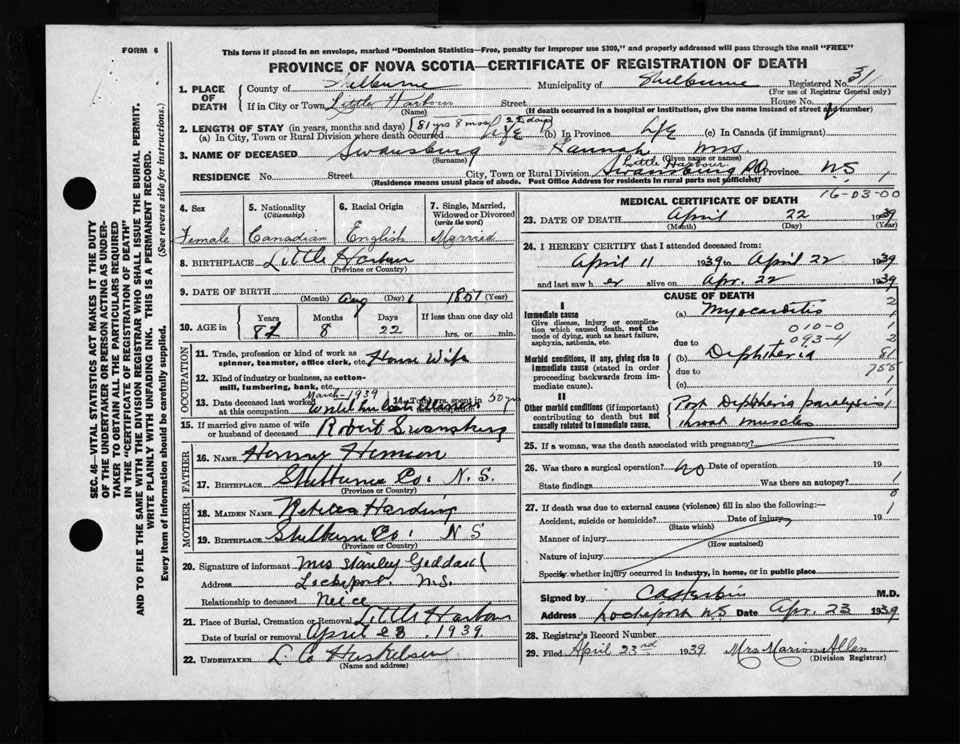 FORM 6
This form if placed in an envelope, marked "Dominion Statistics—Free, penalty for improper use $300," and properly addressed will pass through the mail "FREE"
PROVINCE OF NOVA SCOTIA—CERTIFICATE OF REGISTRATION OF DEATH
1. PLACE OF DEATH
County of Shelburne Municipality of Shelburne Registered No. 31
(For use of Registrar General only)
If in City or Town Little Harbour Street House No.
(Name) (If death occurred in a hospital or institution, give name instead of street and number)
2. LENGTH OF STAY (in years, months and days) [81 yrs 8 mos 22 days]
(a) In City, Town or Rural Division where death occurred Life (b) In Province Life (c) In Canada (if immigrant)
3. NAME OF DECEASED Swansburg Hannah Mrs.
(Surname) (Given name or names)
Little Harbour
RESIDENCE No. Street City, Town or Rural Division Swansburg P.O. Province N.S. 1
(Residence means usual place of abode. Post Office Address for residents in rural parts not sufficient)
4. Sex
Female
5. Nationality
(Citizenship)
Canadian
6. Racial Origin
English
7. Single, Married, Widowed or Divorced
(write the word)
Married
8. BIRTHPLACE Little Harbour
(Province or Country)
9. DATE OF BIRTH
(Month) Aug (Day) 1 1857 (Year)
10. AGE in
Years Months Days If less than one day old
81 8 22 hrs. or min.
OCCUPATION
11. Trade, profession or kind of work as House Wife
spinner, teamster, office clerk, etc.
12. Kind of industry or business, as cotton-
mill, lumbering, bank, etc.
March-1939
13. Date deceased last worked 14. Total yrs. spent in 50 yrs
at this occupation until in this occupation
15. If married give name of wife
or husband of deceased Robert Swansburg
FATHER
16. NAME
17. BIRTHPLACE Shelburne Co. N.S.
(Province or Country)
MOTHER
18. MAIDEN NAME Rebecca Harding
19. BIRTHPLACE Shelburn Co. N S
(Province or Country)
20. Signature of informant Mrs Stanley Goddard
Address Lockeport. N.S.
Relationship to deceased Neice
21. Place of Burial, Cremation or Removal Little Harbour
Date of burial or removal April 23. 1939
22. UNDERTAKER L. C.
(Name and address)
MEDICAL CERTIFICATE OF DEATH
16-03-00
23. DATE OF DEATH April 22 1939
(Month) (Day) (Year)
24. I HEREBY CERTIFY that I attended deceased from:
April 11 1939 to April 22 1939
and last saw her alive on Apr. 22 1939
CAUSE OF DEATH
I
Immediate cause
Give disease, injury or complication which caused death, not the mode of dying, such as heart failure, asphyxia, asthenia, etc.
(a) Myocarditis 2
010-0 1
due to 093-4 2
Morbid conditions, if any, giving rise to immediate cause (stated in order proceeding backwards from immediate cause).
(b) Diphtheria 81
due to 755
(c) 1
II
Other morbid conditions (if important) contributing to death but not causally related to immediate cause.
Post Diphtheria paralysis
throat muscles
25. If a woman, was the death associated with pregnancy?
26. Was there a surgical operation? No Date of operation 19
State findings Was there an autopsy? 1
0
27. If death was due to external causes (violence) fill in also the following:— 1
Accident, suicide or homicide? Date of injury 19 1
(State which)
Manner of injury
(How sustained)
Nature of injury
Specify whether injury occurred in industry, in home, or in public place
Signed by M.D.
Address Lockeport N.S. Date Apr. 23 1939
28. Registrar's Record Number
29. Filed April 23rd 1939 Mrs Marion Allen
(Division Registrar)
SEC. 46—VITAL STATISTICS ACT MAKES IT THE DUTY
OF THE UNDERTAKER OR PERSON ACTING AS UNDER-
TAKER TO OBTAIN ALL THE PARTICULARS REQUIRED
IN THE "CERTIFICATE OF REGISTRATION OF DEATH"
AND TO FILE THE SAME WITH THE DIVISION REGISTRAR WHO SHALL ISSUE THE BURIAL PERMIT.
WRITE PLAINLY WITH UNFADING INK. THIS IS A PERMANENT RECORD.
Every item of information should be carefully supplied. (See reverse side for instructions.)